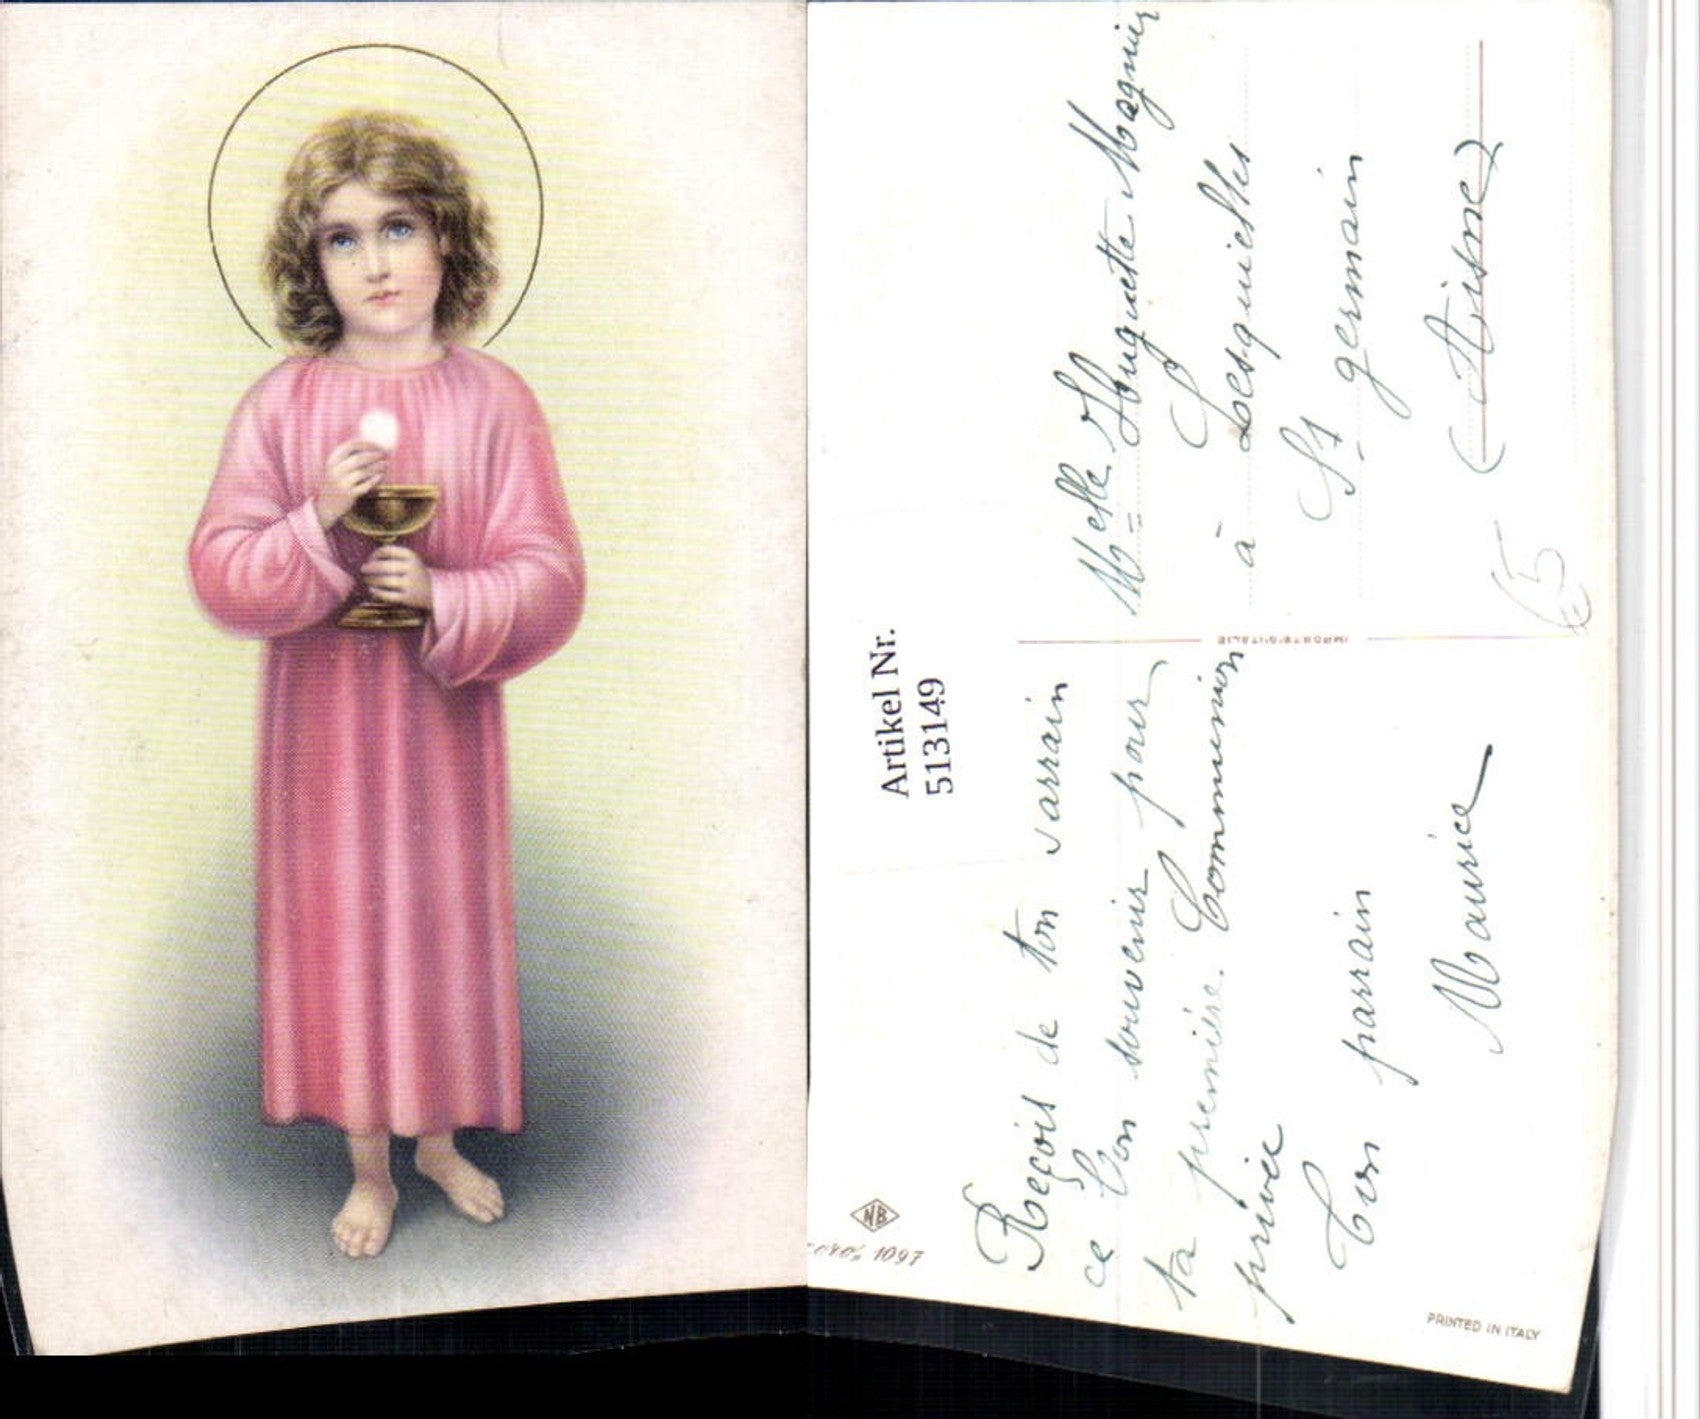 Artikel Nr.
513149
Reçois de ton parrain
ce bon souvenir pour
ta première Communion
privée
Ton parrain
Maurice
Melle Huguette Magnier
à Lesquielles
St germain
(Aisne)
IMPORTÉ D'ITALIE
65
NB
1097
PRINTED IN ITALY